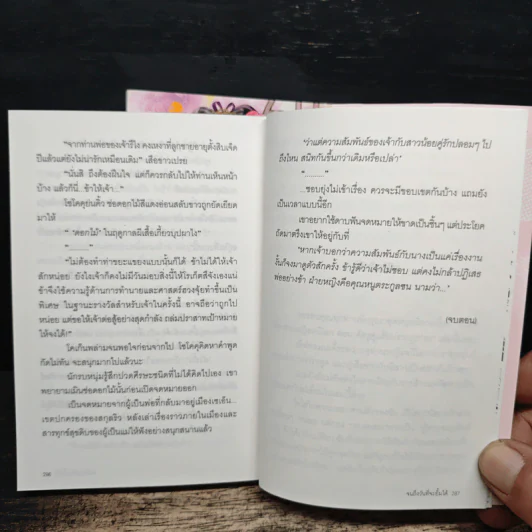 "จากท่านพ่อของเจ้ารึไง คงเหงาที่ลูกชายอายุตั้งสิบเจ็ด
ปีแล้วแต่ยังไม่น่ารักเหมือนเดิม" เสือขาวเปรย
"นั่นสิ ถึงต้องฝืนใจ แต่ก็ควรกลับไปให้ท่านเห็นหน้า
บ้าง แล้วก็นี่...ข้าให้เจ้า..."
โชโคคุยื่นคิ้ว ช่อดอกไม้สีแดงอ่อนสลับขาวถูกยัดเยียด
มาให้
" 'ดอกไม้' ในฤดูกาลมีเสื้อเกี้ยวบุปผาไง"
"..........."
"ไม่ต้องทำท่าขยะแขยงแบบนั้นก็ได้ ข้าไม่ได้ให้เจ้า
สักหน่อย ยังไงเจ้าก็คงไม่มีวันมอบสิ่งนี้ให้ใครก็ดีสิจึงเองแน่
ข้าจึงใช้ความรู้ด้านการทำนายและศาสตร์ฮวงจุ้ยทำขึ้นเป็น
พิเศษ ในฐานะรางวัลสำหรับเจ้าในครั้งนี้ อาจถือว่าถูกไป
หน่อย แต่ขอให้เจ้าต่อสู้อย่างสุดกำลัง ถล่มปราสาทเป้าหมาย
ให้จงได้"
โคเก็นพล่ามจนพอใจก่อนจากไป โชโคคุคิดหาคำพูด
กัดไม่ทัน จะสนุกมากไปแล้วนะ
นักรบหนุ่มรู้สึกปวดศีรษะชนิดที่ไม่ได้คิดไปเอง เขา
พยายามเมินช่อดอกไม้นั้นก่อนเปิดจดหมายออก
เป็นจดหมายจากผู้เป็นพ่อที่กลับมาอยู่เมืองเซเอ็น...
เขตปกครองของสกุลริว หลังเล่าเรื่องราวภายในเมืองและ
สารทุกข์สุขดิบของผู้เป็นแม่ให้ฟังอย่างสนุกสนานแล้ว
"ว่าแต่ความสัมพันธ์ของเจ้ากับสาวน้อยคู่รักปลอมๆ ไป
ถึงไหน สนิทกันขึ้นกว่าเดิมหรือเปล่า"
"..........."
...ชอบยุ่งไม่เข้าเรื่อง ควรจะมีขอบเขตกันบ้าง แถมยัง
เป็นเวลาแบบนี้อีก
เขาอยากใช้ดาบฟันจดหมายให้ขาดเป็นชิ้นๆ แต่ประโยค
ถัดมาตรึงเขาให้อยู่กับที่
"หากเจ้าบอกว่าความสัมพันธ์กับนางเป็นแค่เรื่องงาน
งั้นก็จงมาดูตัวสักครั้ง ข้ารู้ดีว่าเจ้าไม่ชอบ แต่คงไม่กล้าปฏิเสธ
พ่ออย่างข้า ฝ่ายหญิงคือคุณหนูตระกูลซน นามว่า..."
(จบตอน)
จนถึงวันที่จะยิ้มได้